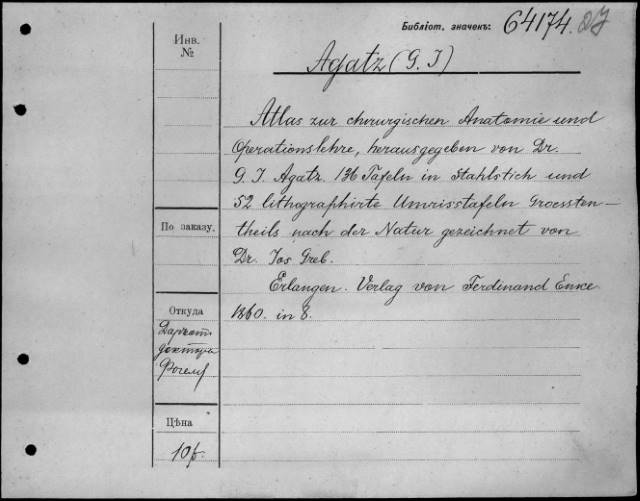 Библіот. значекъ: 64174.
Инв.
№
Agatz (G. I)
Atlas zur chirurgischen Anatomie und
Operationslehre, herausgegeben von Dr.
G. I. Agatz. 136 Tafeln in Stahlstich und
52 lithographirte Umrisstafeln Groessten-
theils nach der Natur gezeichnet von
Dr. Ios Greb.
Erlangen. Verlag von Ferdinand Enke
1860. in 8.
По заказу.
Откуда
доктора
Цѣна
10 р.